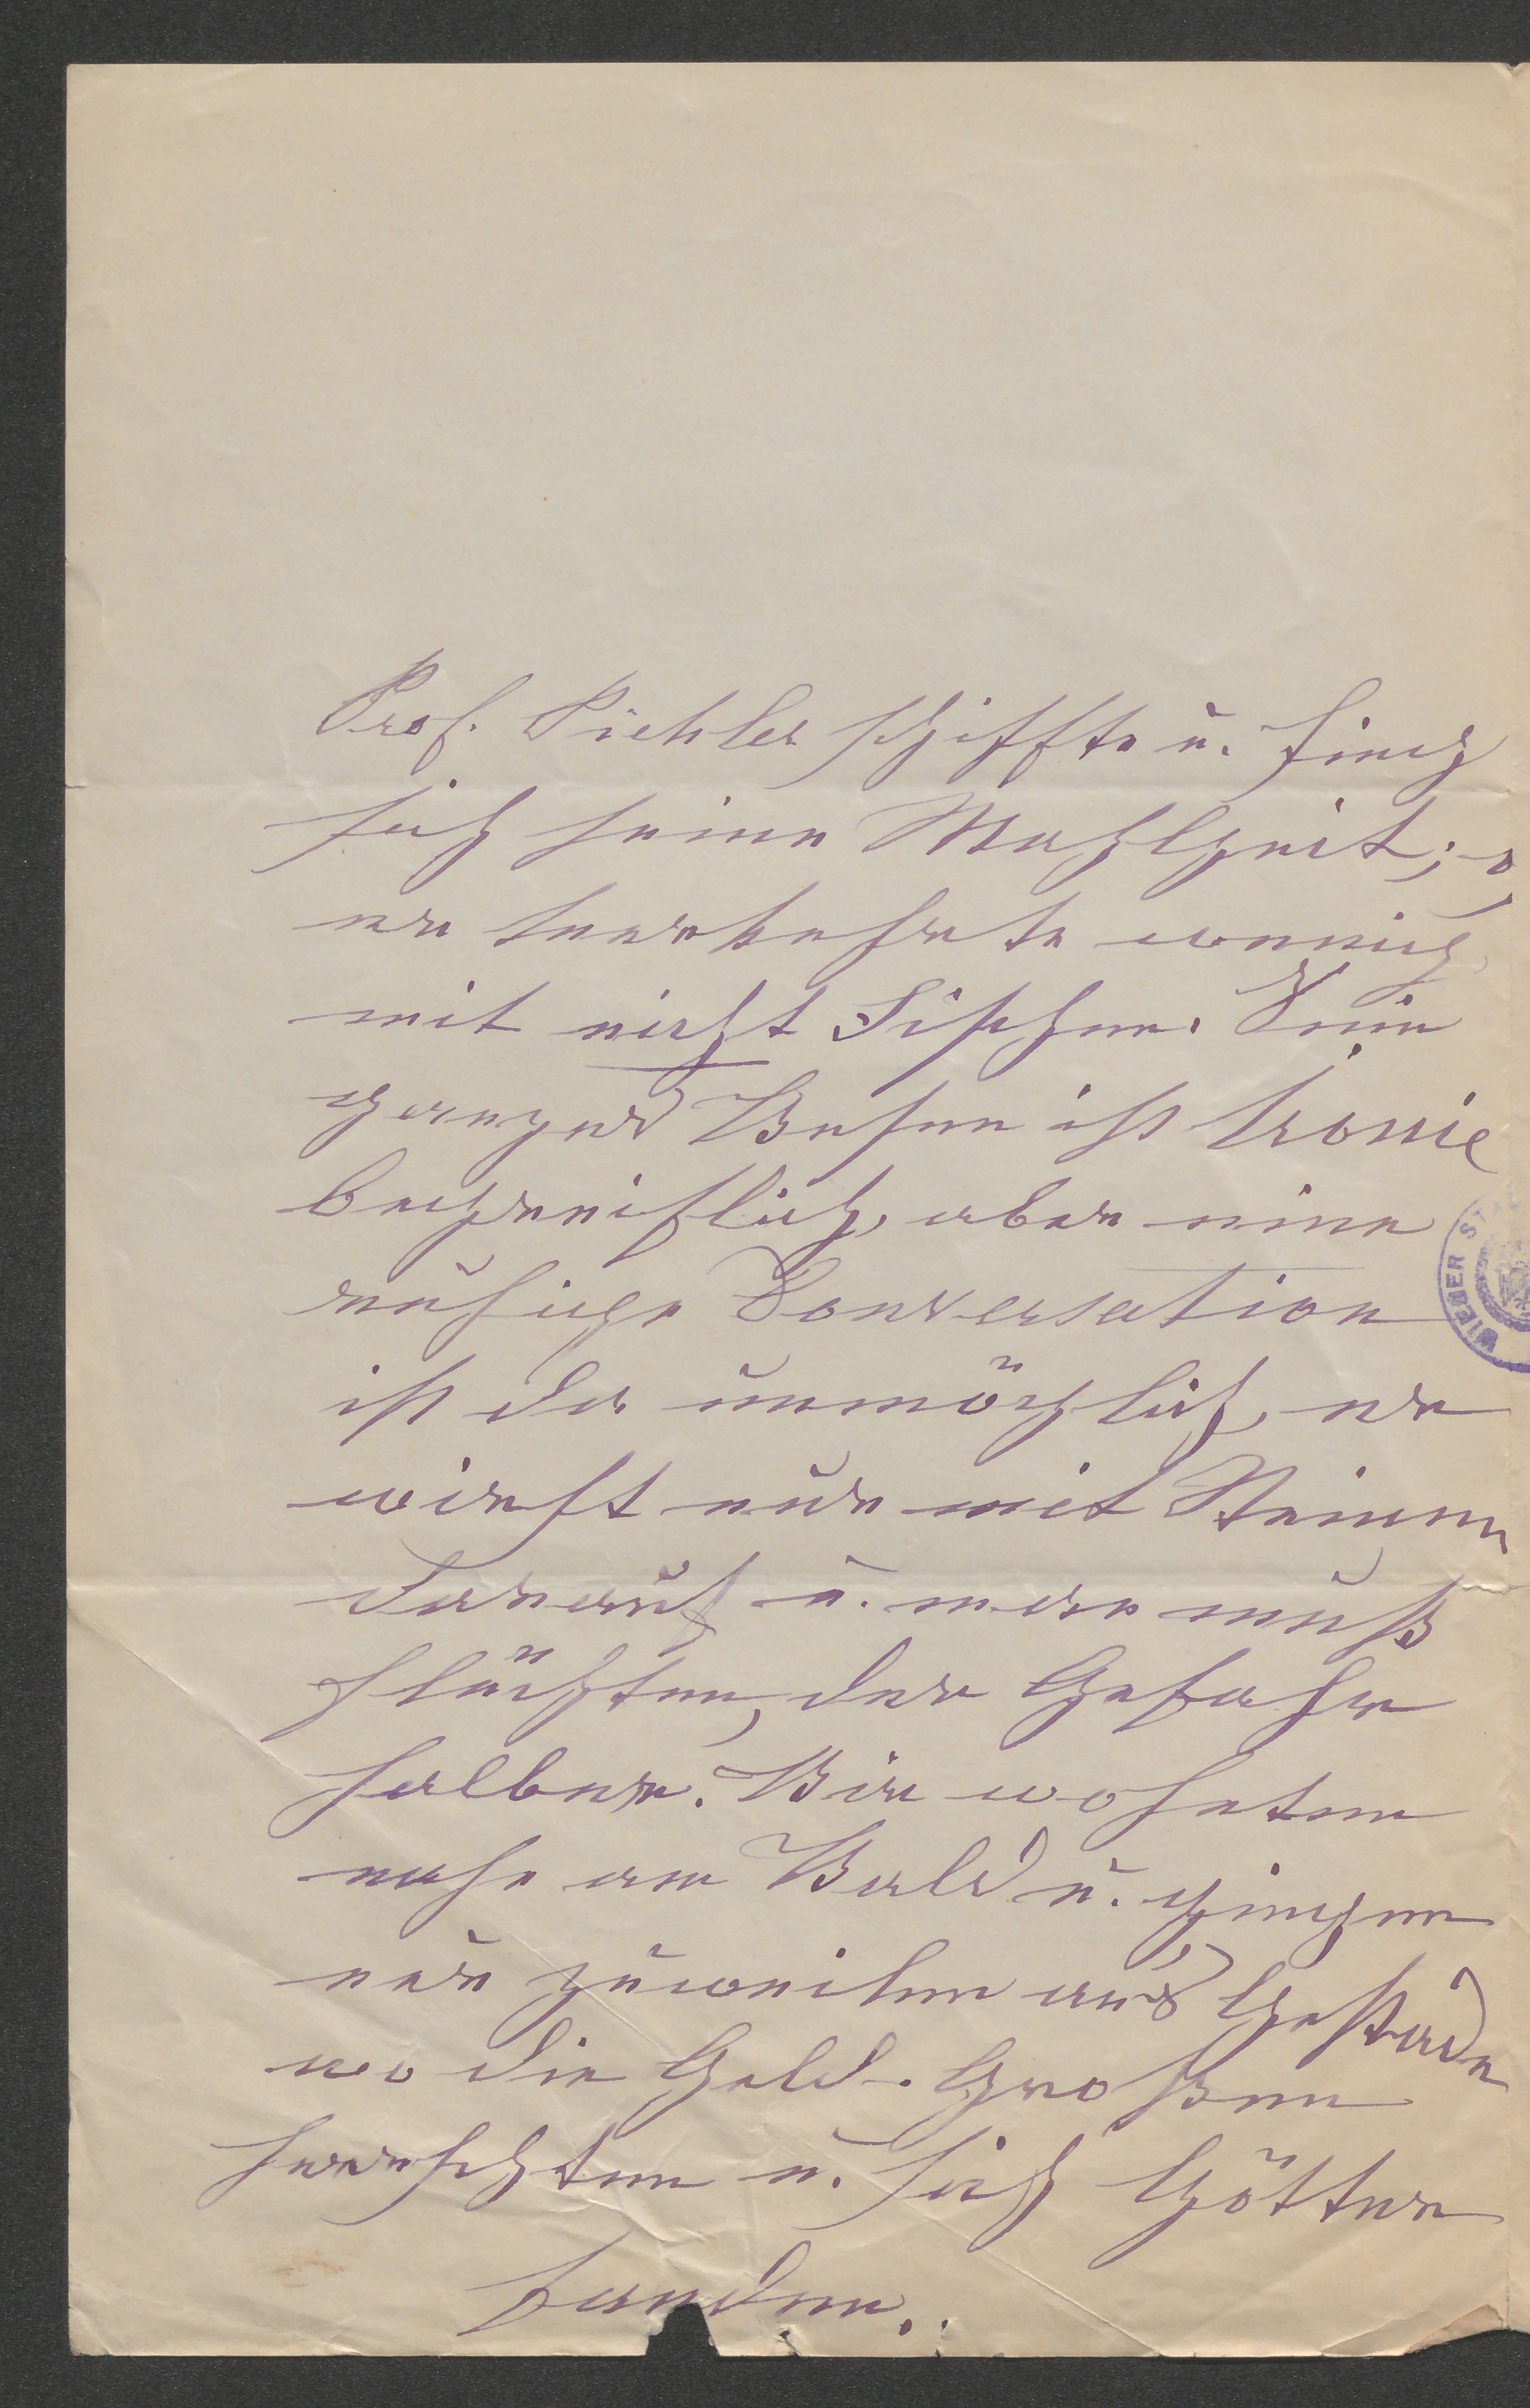 Prof. Pichler schiffte u. fing
sich seine Mahlzeit;
er verkehrte wenig
mit nicht Fischern. Sein
ganzes Wesen ist Ironie
begreiflich, aber eine
ruhige Conversation
ist da unmöglich, er
wirft nur mit Steinen
darauf u. man muß
flüchten, der Gefahr
halber. Wir wohnten
nahe am Wald u. gingen
nur zuweilen ans Gestade
wo die Geld-Großen
herrschten u. sich Götter
fanden.
WIENER ST